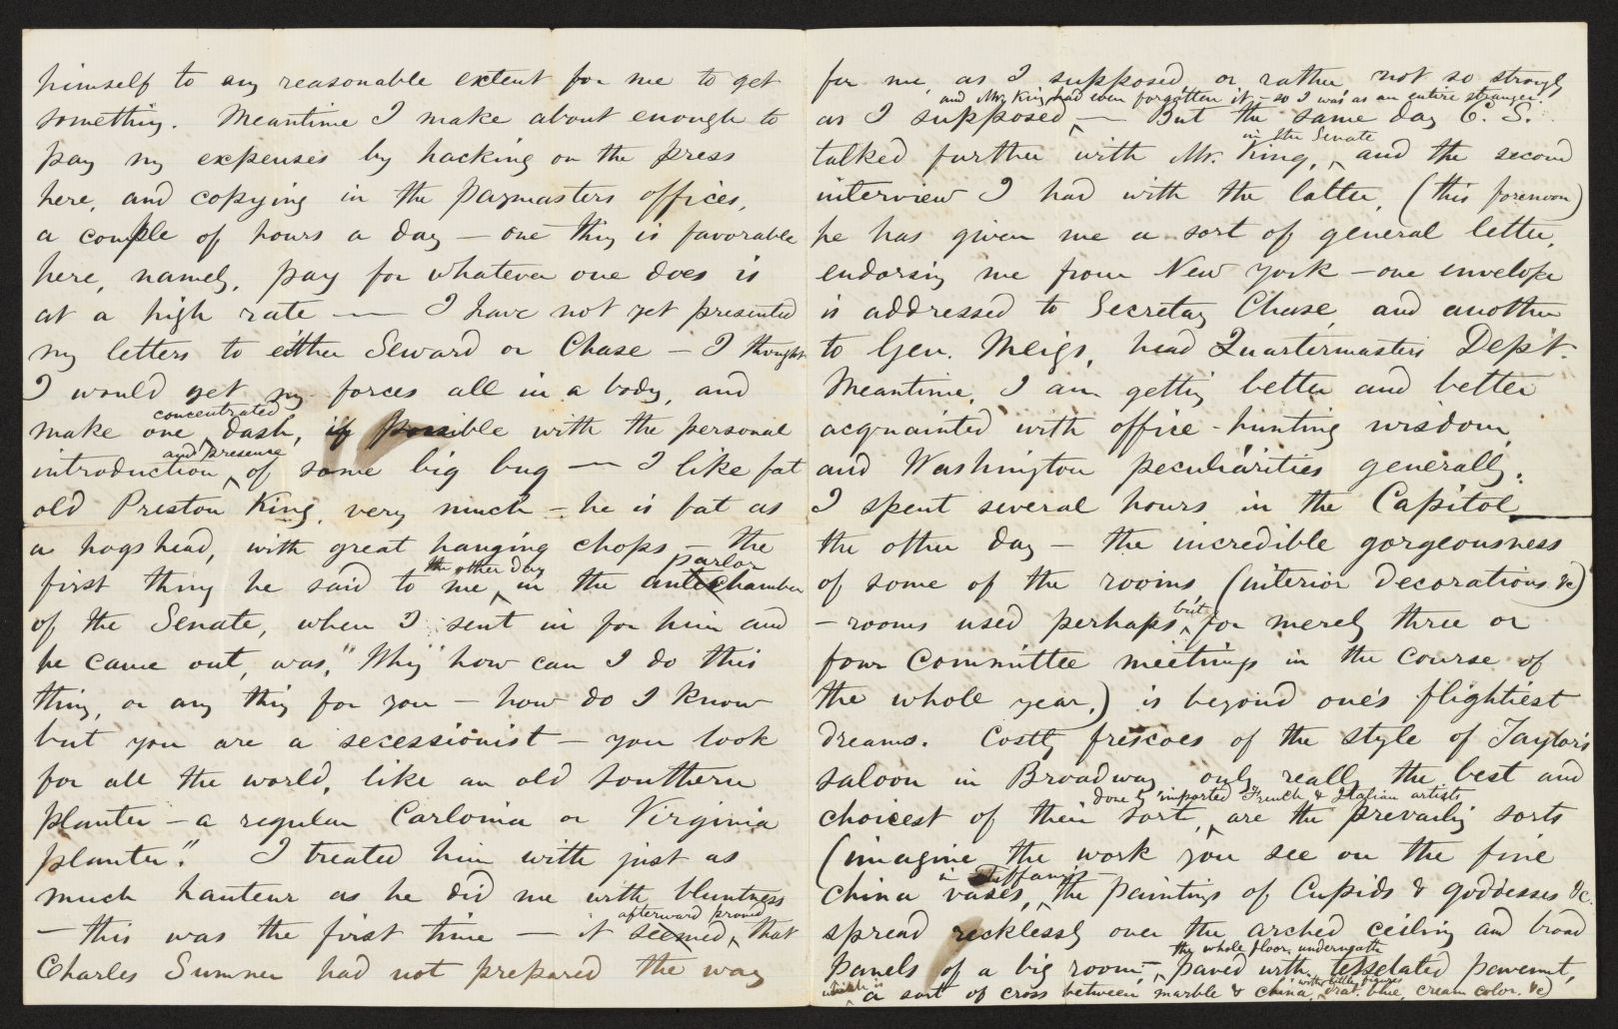 himself to any reasonable extent for me to get
something. Meantime I make about enough to
pay my expenses by hacking on the press
here, and copying in the paymasters offices,
a couple of hours a day — one thing is favorable
here, namely, pay for whatever one does is
at a high rate — I have not yet presented
my letters to either Seward or Chase — I thought
I would get my forces all in a body, and
concentrated
make one dash, if possible with the personal
and presence
introduction of some big bug — I like fat
old Preston King, very much — he is fat as
a hogshead, with great hanging chops — the
the other day parlor
first thing he said to me in the antechamber
of the Senate, when I sent in for him and
he came out, was, "Why how can I do this
thing, or any thing for you — how do I know
but you are a secessionist — you look
for all the world, like an old Southern
planter — a regular Carlonia or Virginia
planter." I treated him with just as
much hauteur as he did me with bluntness
afterward proved
— this was the first time — it seemed that
Charles Sumner had not prepared the way
for me, as I supposed, or rather not so strongly
and Mr. King had even forgotten it — so I was as an entire stranger.
as I supposed, — But the same day C. S.
in the Senate
talked further with Mr. King, and the second
interview I had with the latter, (this forenoon)
he has given me a sort of general letter,
endorsing me from New York — one envelope
is addressed to Secretary Chase, and another
to Gen. Meigs, head Quartermasters Dep't.
Meantime, I am getting better and better
acquainted with office-hunting wisdom,
and Washington peculiarities generally.
I spent several hours in the Capitol
the other day — the incredible gorgeousness
of some of the rooms (interior decorations &c)
but
— rooms used perhaps for merely three or
four Committee meetings in the course of
the whole year,) is beyond one's flightiest
dreams. Costly frescoes of the style of Taylor's
saloon in Broadway, only really the best and
done by imported French & Italian artists
choicest of their sort, are the prevailing sorts
(imagine the work you see on the fine
in Tiffany's
china vases, the paintings of Cupids & goddesses &c.
spread recklessly over the arched ceiling and broad
the whole floor underneath
panels of a big room — paved with tesselated pavement,
which is with little figures
a sort of cross between marble & china, drab, blue, cream color, &c)